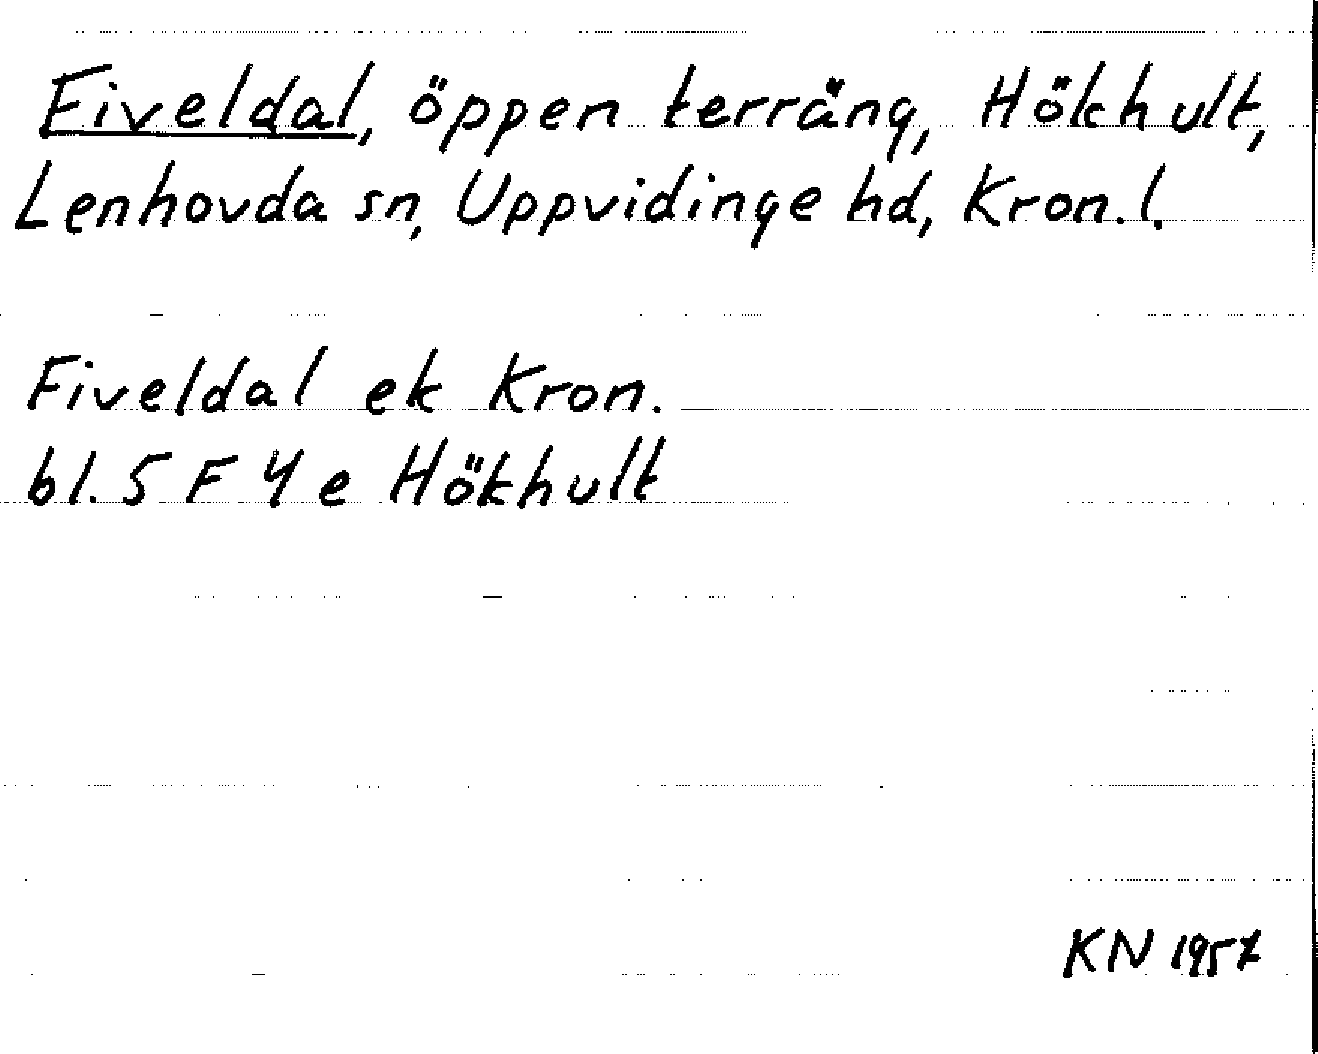 Fiveldal, öppen terräng, Hökhult,
Lenhovda sn, Uppvidinge hd, Kron. l.
Fiveldal ek Kron.
bl. 5 F 4 e Hökhult
KN 1957